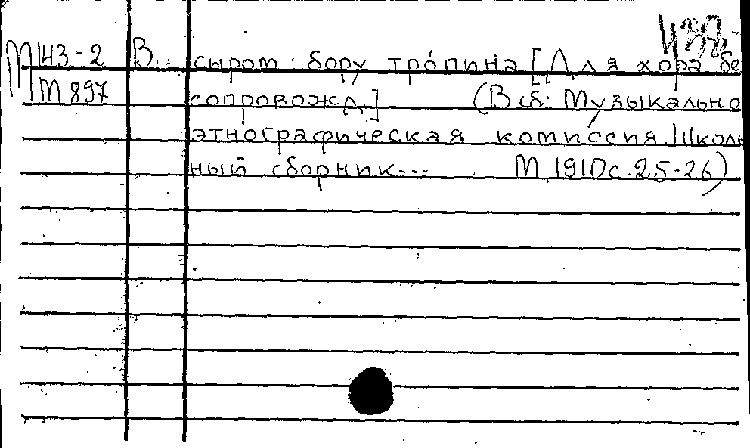 М 143-2 В сыром бору тропина [Для хора бе
М 897 сопровожд.] (В сб: Музыкально
этнографическая комиссия. Школь
ный сборник... М, 1910 с. 25-26)